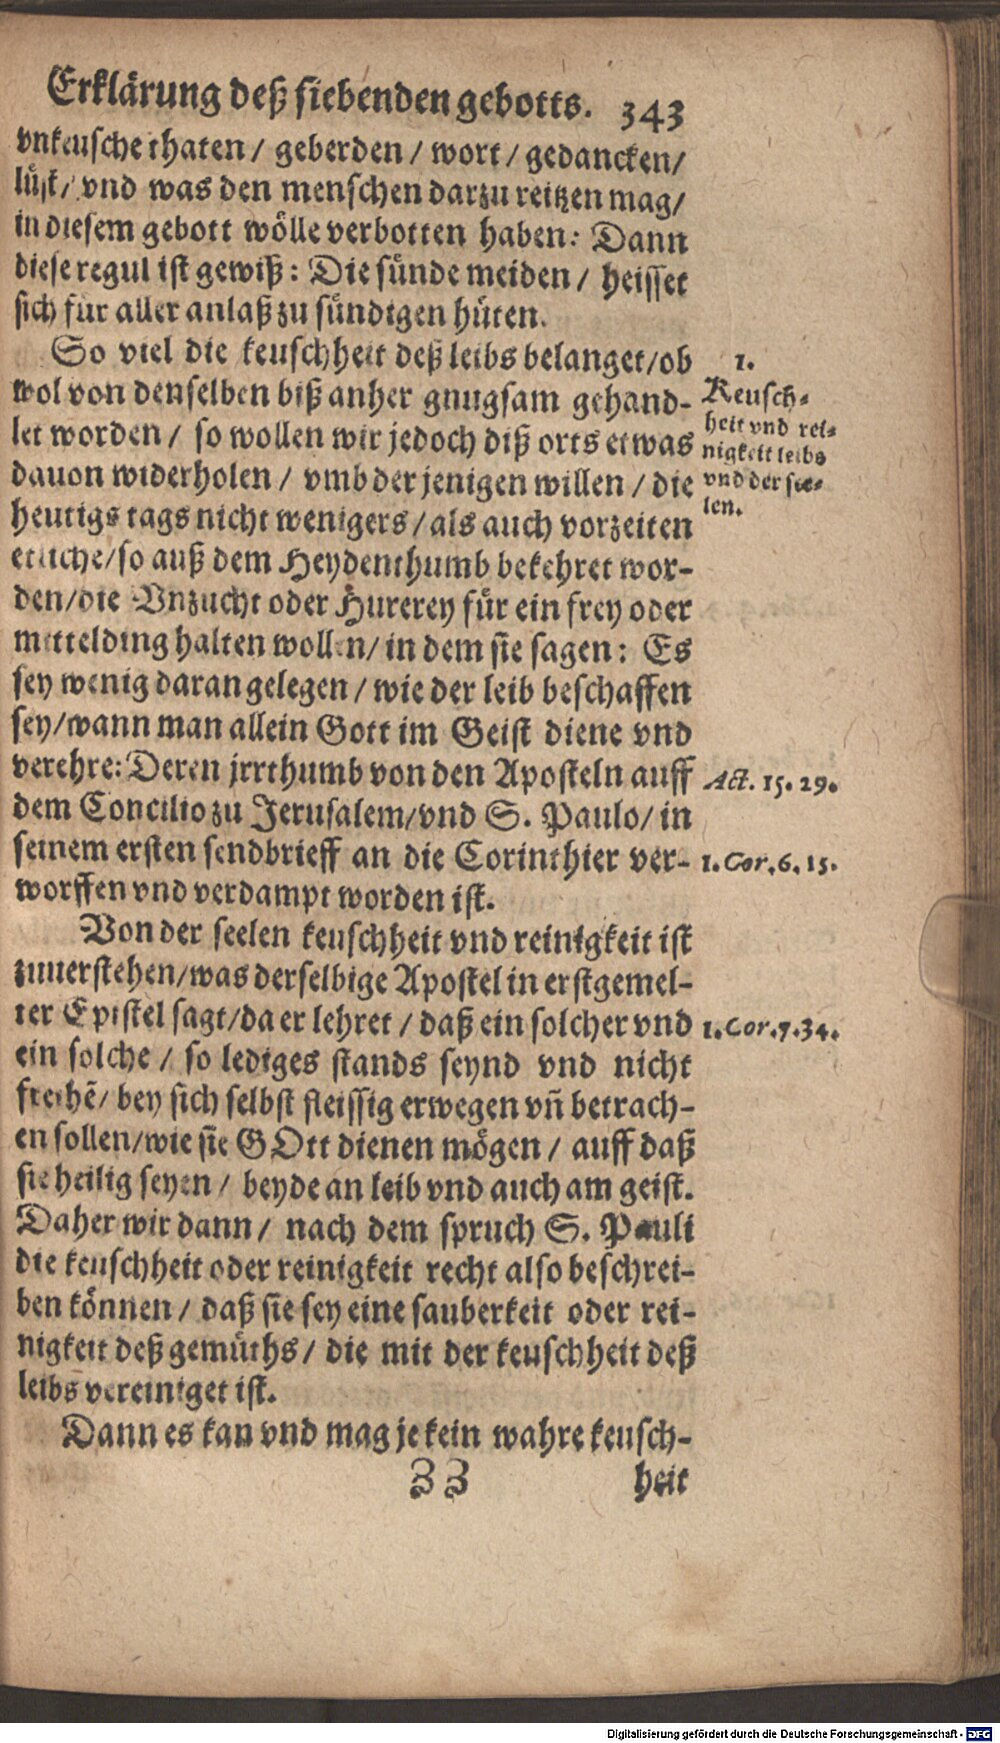 Erklärung deß siebenden gebotts. 343
vnkeusche thaten / geberden / wort / gedancken /
lüst / vnd was den menschen darzu reitzen mag /
in diesem gebott wölle verbotten haben: Dann
diese regul ist gewiß: Die sünde meiden / heisset
sich für aller anlaß zu sündigen hüten.
So viel die keuschheit deß leibs belanget / ob
wol von denselben biß anher gnugsam gehand-
let worden / so wollen wir jedoch diß orts etwas
dauon widerholen / vmb der jenigen willen / die
heutigs tags nicht wenigers / als auch vorzeiten
etliche / so auß dem Heydenthumb bekehret wor-
den / die Vnzucht oder Hurerey für ein frey oder
mittelding halten wollen / in dem sie sagen: Es
sey wenig daran gelegen / wie der leib beschaffen
sey / wann man allein Gott im Geist diene vnd
verehre: Deren jrrthumb von den Aposteln auff
dem Concilio zu Jerusalem / vnd S. Paulo / in
seinem ersten sendbrieff an die Corinthier ver-
worffen vnd verdampt worden ist.
Von der seelen keuschheit vnd reinigkeit ist
zuuerstehen / was derselbige Apostel in erstgemel-
ter Epistel sagt / da er lehret / daß ein solcher vnd
ein solche / so lediges stands seynd vnd nicht
freihẽ / bey sich selbst fleissig erwegen vñ betrach-
en sollen / wie sie GOtt dienen mögen / auff daß
sie heilig seyen / beyde an leib vnd auch am geist.
Daher wir dann / nach dem spruch S. Pauli
die keuschheit oder reinigkeit recht also beschrei-
ben können / daß sie sey eine sauberkeit oder rei-
nigkeit deß gemüths / die mit der keuschheit deß
leibs vereiniget ist.
Dann es kan vnd mag je kein wahre keusch-
Zz heit
1.
Keusch-
heit vnd rei-
nigkeit leibs
vnd der see-
len.
Act. 15. 29.
1. Cor. 6. 15.
1. Cor. 7. 34.
Digitalisierung gefördert durch die Deutsche Forschungsgemeinschaft - DFG